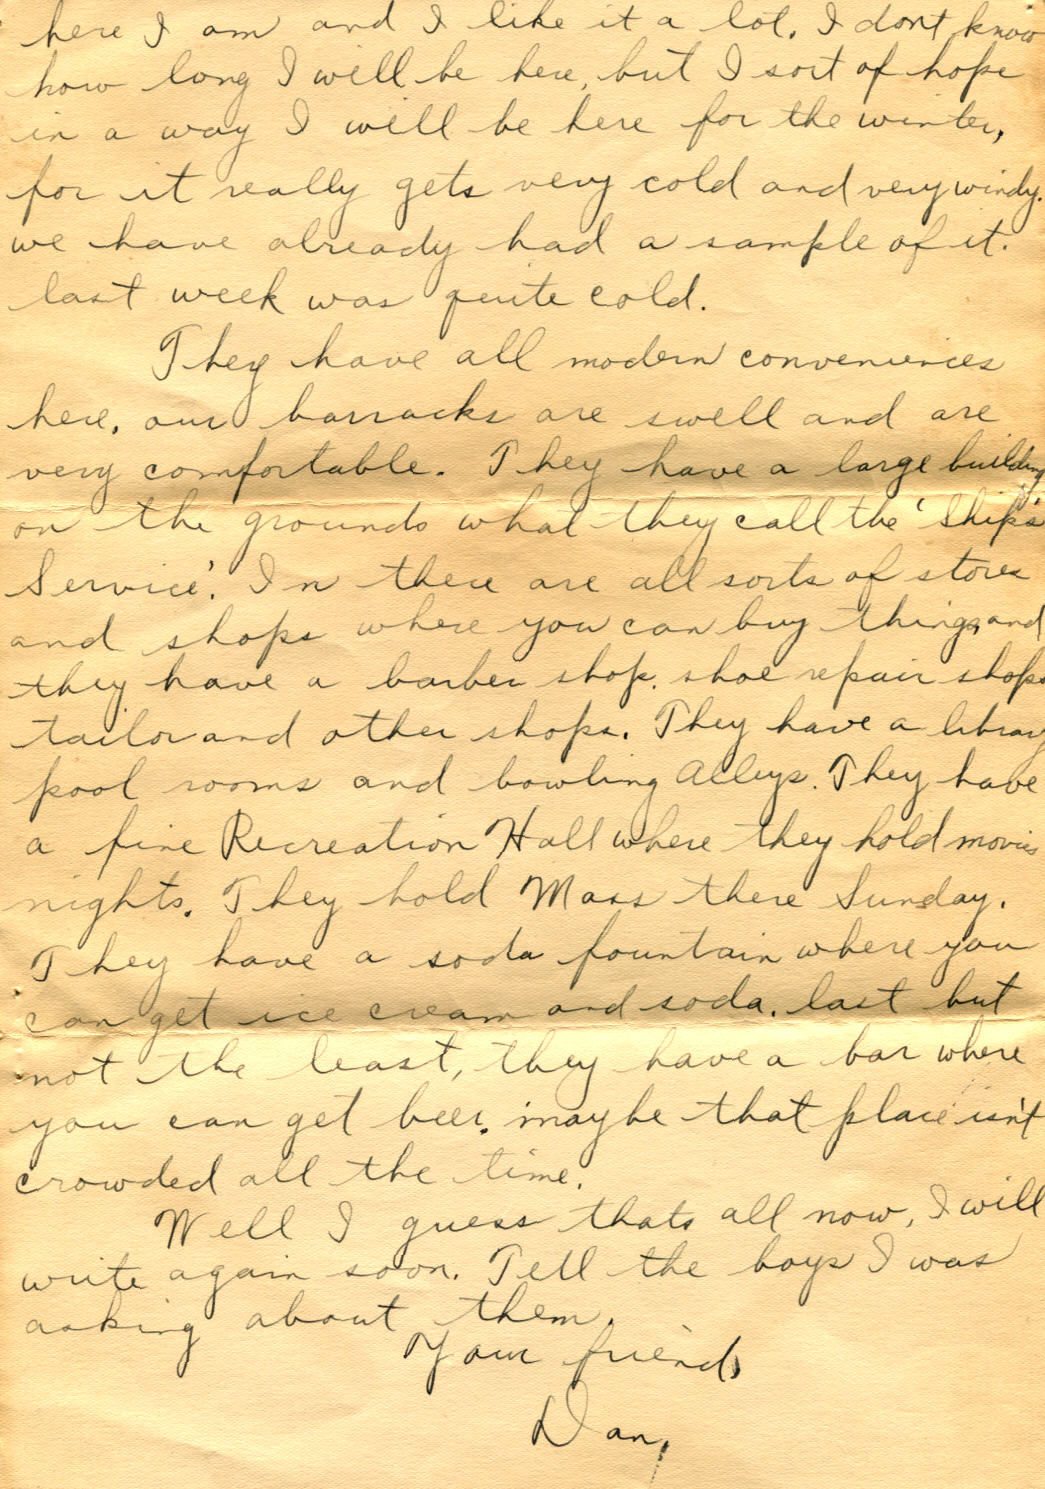 here I am and I like it a lot. I dont know
how long I will be here, but I sort of hope
in a way I will be here for the winter,
for it really gets very cold and very windy.
we have already had a sample of it.
last week was quite cold.
They have all modern conveniences
here. our barracks are swell and are
very comfortable. They have a large building
on the grounds what they call the 'Ship's
Service'. In there are all sorts of stores
and shops where you can buy things, and
they have a barber shop. shoe repair shops
tailor and other shops. They have a library
pool rooms and bowling Alleys. They have
a fine Recreation Hall where they hold movies
nights. They hold Mass there Sunday.
They have a soda fountain where you
can get ice cream and soda. last but
not the least, they have a bar where
you can get beer. maybe that place isn't
crowded all the time.
Well I guess thats all now, I will
write again soon. Tell the boys I was
asking about them.
Your friend,
Dan,